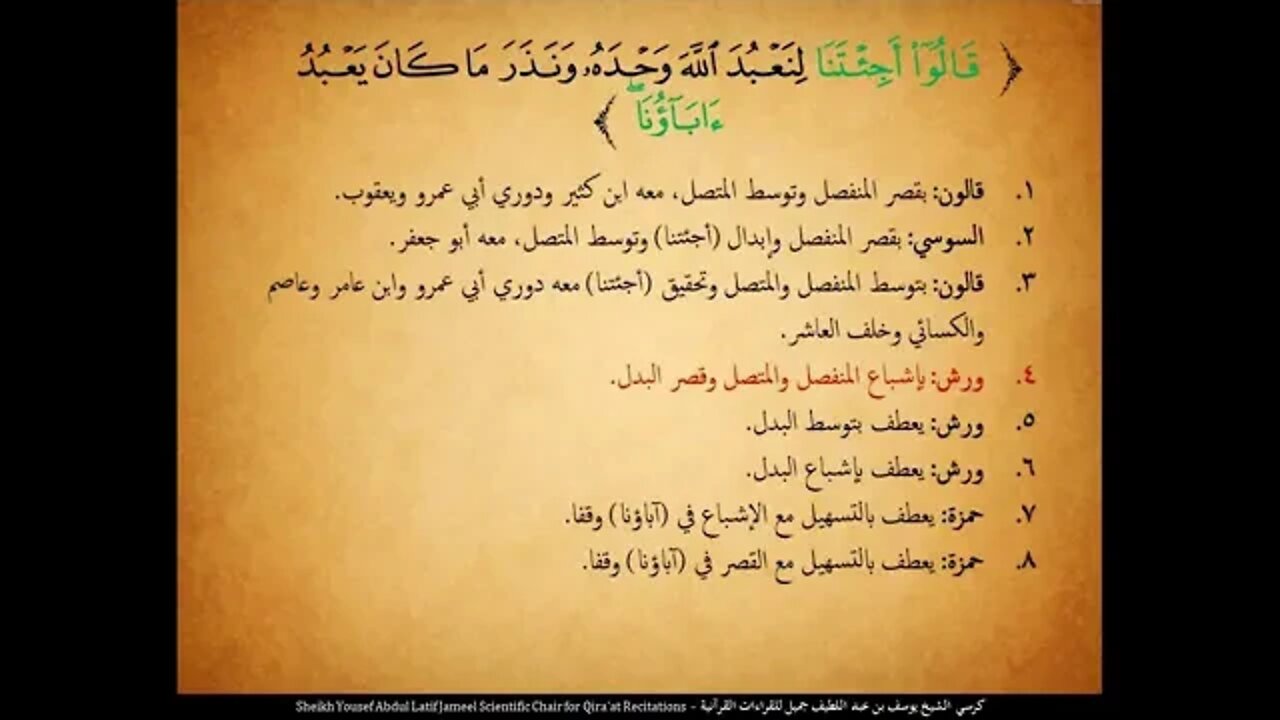 ﴿ قَالُوٓاْ أَجِئۡتَنَا لِنَعۡبُدَ ٱللَّهَ وَحۡدَهُۥ وَنَذَرَ مَا كَانَ يَعۡبُدُ
ءَابَآؤُنَا ۖ ﴾
١. قالون: بقصر المنفصل وتوسط المتصل، معه ابن كثير ودوري أبي عمرو ويعقوب.
٢. السوسي: بقصر المنفصل وإبدال (أجئتنا) وتوسط المتصل، معه أبو جعفر.
٣. قالون: بتوسط المنفصل والمتصل وتحقيق (أجئتنا) معه دوري أبي عمرو وابن عامر وعاصم
والكسائي وخلف العاشر.
٤. ورش: بإشباع المنفصل والمتصل وقصر البدل.
٥. ورش: يعطف بتوسط البدل.
٦. ورش: يعطف بإشباع البدل.
٧. حمزة: يعطف بالتسهيل مع الإشباع في (آباؤنا) وقفا.
٨. حمزة: يعطف بالتسهيل مع القصر في (آباؤنا) وقفا.
Sheikh Yousef Abdul Latif Jameel Scientific Chair for Qira'at Recitations - كرسي الشيخ يوسف بن عبد اللطيف جميل للقراءات القرآنية